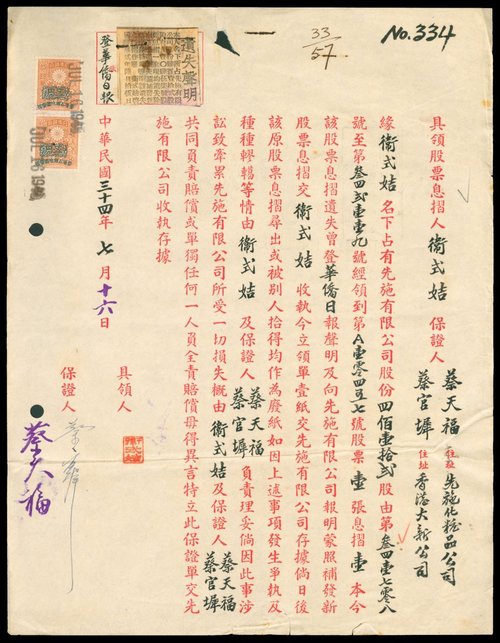 No. 334
33/57
遺失聲明
登華僑日報
具領股票息摺人衛式姞 保證人
蔡天福 住址先施化粧品公司
蔡官墀 住址香港大新公司
緣衛式姞 名下占有先施有限公司股份四佰壹拾弍股由第叁四壹七零八
號至第叁四弍壹壹九號經領到第A壹零四弍七號股票壹張息摺壹本今
該股票息摺遺失曾登華僑日報聲明及向先施有限公司報明蒙照補發新
股票息摺交衛式姞 收執今立領單壹紙交先施有限公司存據倘日後
該原股票息摺尋出或被別人拾得均作為廢紙如因上述事項發生爭執及
種種轇轕等情由衛式姞 及保證人蔡天福 蔡官墀 負責理妥倘因此事涉
訟致牽累先施有限公司所受一切損失概由衛式姞及保證人蔡天福 蔡官墀
共同負責賠償或單獨任何一人員全責賠償毋得異言特立此保證單交先
施有限公司收執存據
中華民國三十四年七月十六日
具領人
保證人
蔡天福